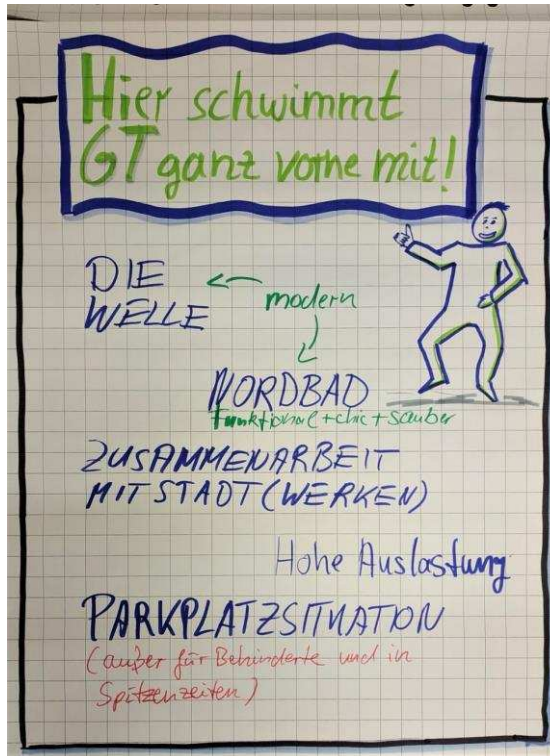 Hier schwimmt
GT ganz vorne mit!
DIE
WELLE
modern
NORDBAD
funktional+chic+sauber
ZUSAMMENARBEIT
MIT STADT(WERKEN)
Hohe Auslastung
PARKPLATZSITUATION
(außer für Behinderte und in
Spitzenzeiten)